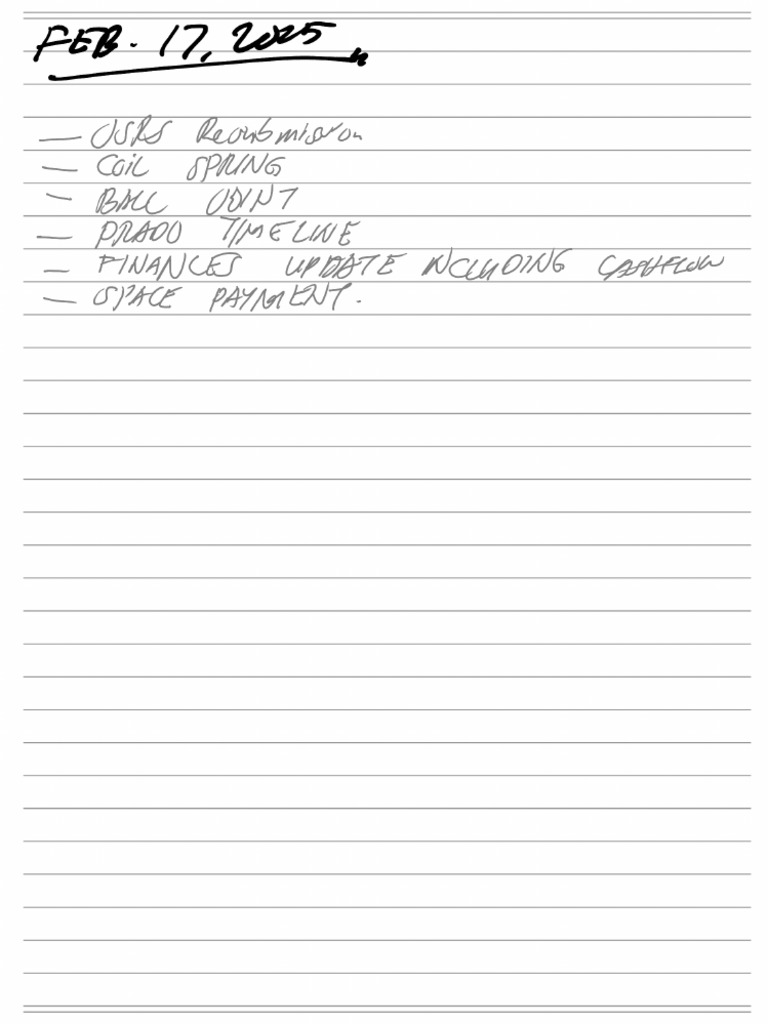 FEB. 17, 2025
— Resubmission
— COIL SPRING
- BALL JOINT
— PRADO TIMELINE
— FINANCES UPDATE INCLUDING CASHFLOW
— SPACE PAYMENT.